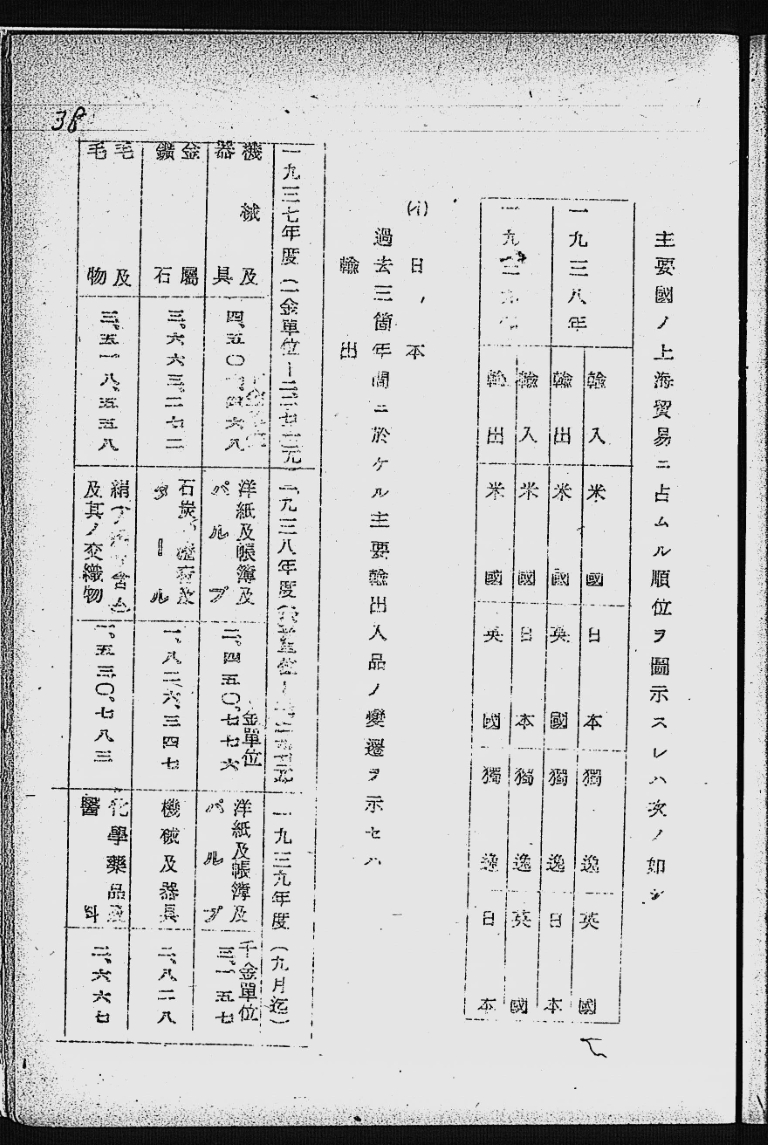 主要國ノ上海貿易ニ占ムル順位ヲ圖示スレハ次ノ如シ
一九三八年
輸入 米國 日本 獨逸 英國
輸出 米國 英國 獨逸 日本
一九三
輸入 米國 日本 獨逸 英國
輸出 米國 英國 獨逸 日本
(イ) 日本
過去三箇年間ニ於ケル主要輸出入品ノ變遷ヲ示セハ
輸出
一九三七年度(一金單位 一九三八年度 一九三九年度(九月迄)
機械及器具 四、五〇 四六八 洋紙及帳簿及パルプ 金單位 二、四五〇、七七六 洋紙及帳簿及パルプ 千金單位 三、一五七
金屬鑛石 三、六六三、二七二 石炭 タール 一、八二六、三四七 機械及器具 二、八二八
毛及毛物 三、五一八、五五八 絹 及其ノ交織物 一、五三〇、七八三 化學藥品及醫料 二、六六七
38